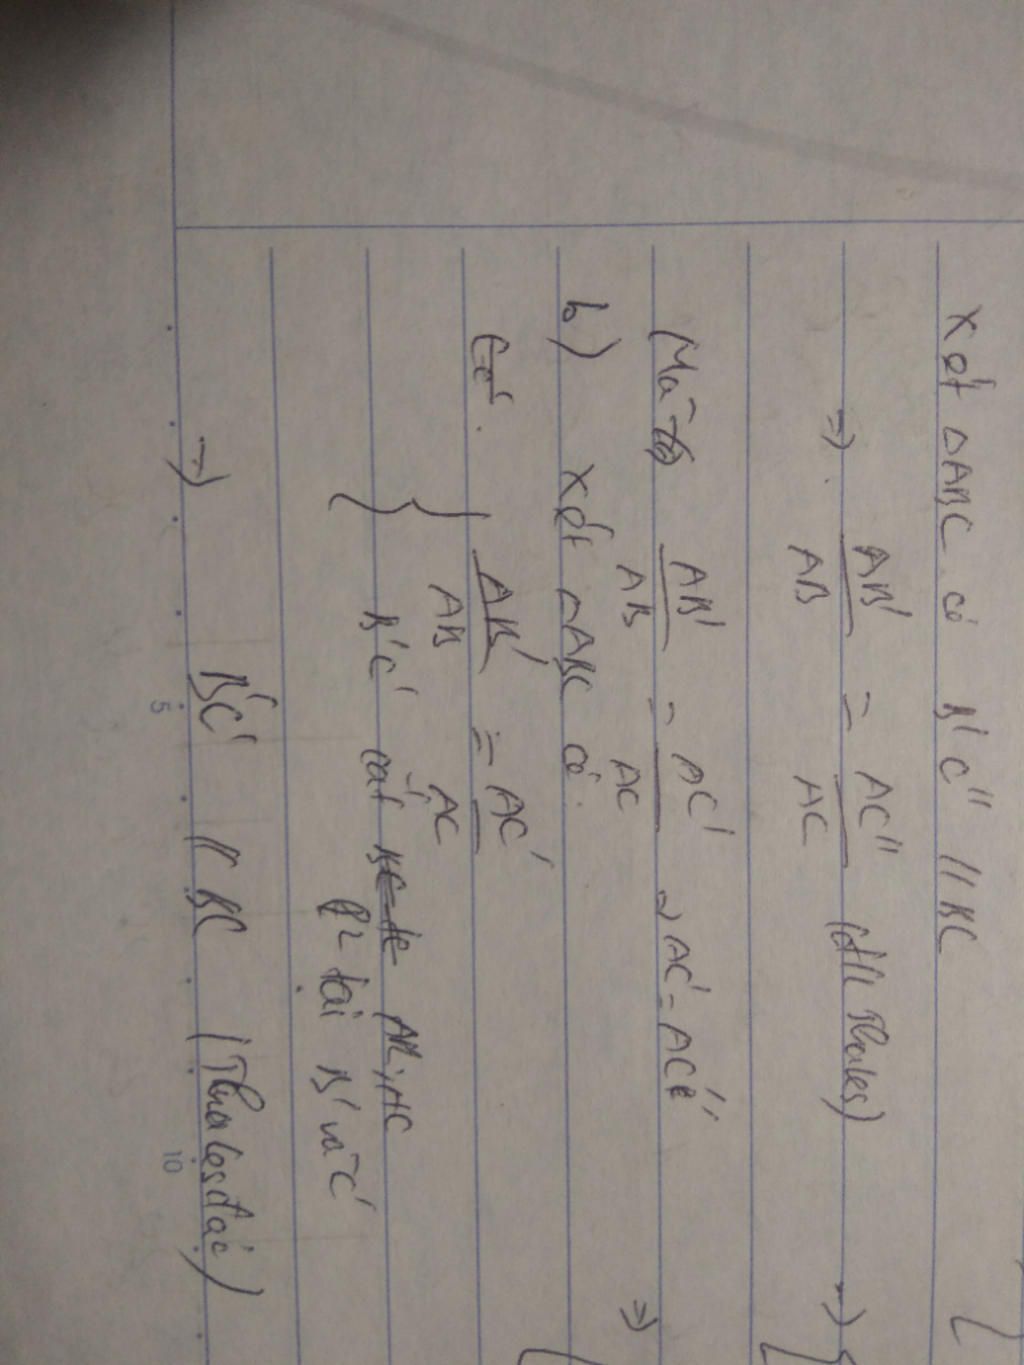 xét △ABC có B'C'' // BC
=> AB'/AB = AC''/AC (đ/l Thales)
(Mà AB'/AB = AC'/AC => AC' = AC''
b) xét △ABC có
AB'/AB = AC'/AC
B'C' cắt AB, AC
lần lượt tại B' và C'
=> B'C' // BC (Thales đảo)
5
10